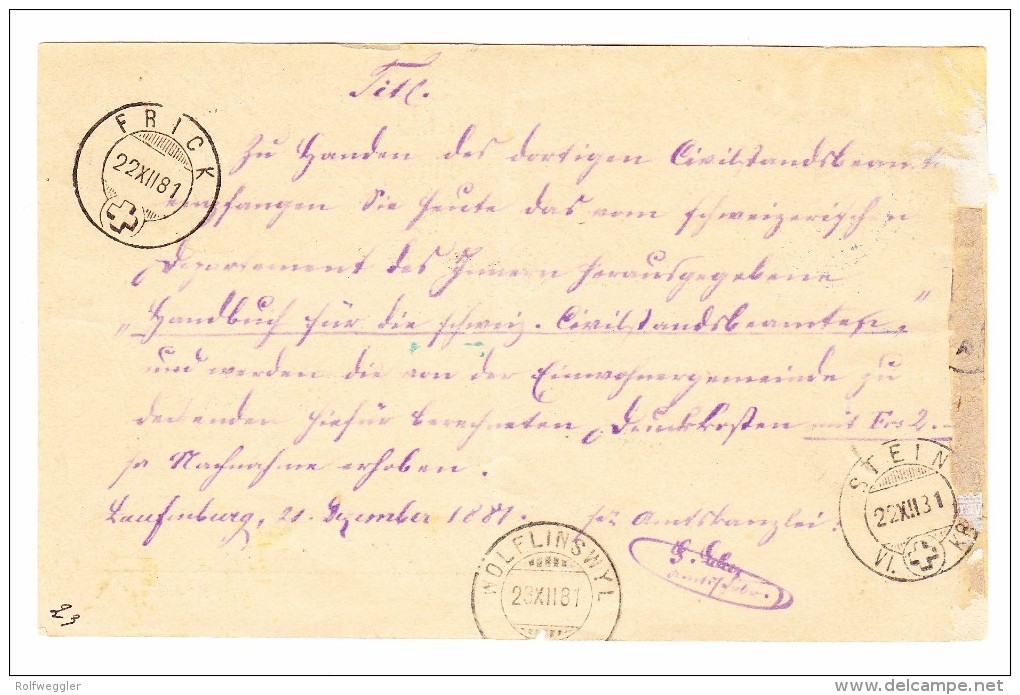 Titl.
FRICK
22XII81
Zu Handen des dortigen Civilstandsbeamt
empfangen Sie heute das vom schweizerischen
Departement des Innern herausgegebene
„Handbuch für die schweiz. Civilstandsbeamten"
und werden die von der Einwohnergemeinde zu
deckenden hiefür berechneten Druckkosten mit Frs 2.–
pr Nachnahme erhoben.
Laufenburg, 21. Dezember 1881. Amtskanzlei:
STEIN
22XII81
VI.
WÖLFLINSWYL
23XII81
23
Rolfweggler
delcampe.net